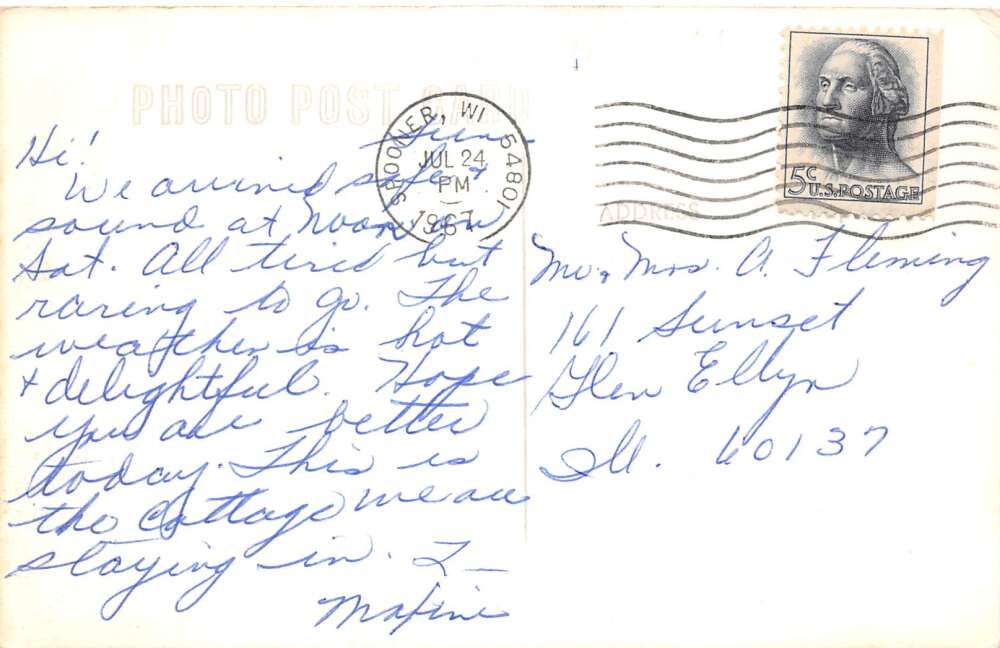 PHOTO POST CARD
Sun.
Hi!
We arrived safe &
sound at Noon on
Sat. All tired but
raring to go. The
weather is hot
& delightful. Hope
you are better
today. This is
the cottage we are
staying in. L—
Maxine
SPOONER, WI 54801
JUL 24
PM
1967
5¢
U.S. POSTAGE
ADDRESS
Mr. Mrs. A. Fleming
161 Sunset
Glen Ellyn
Ill. 60137